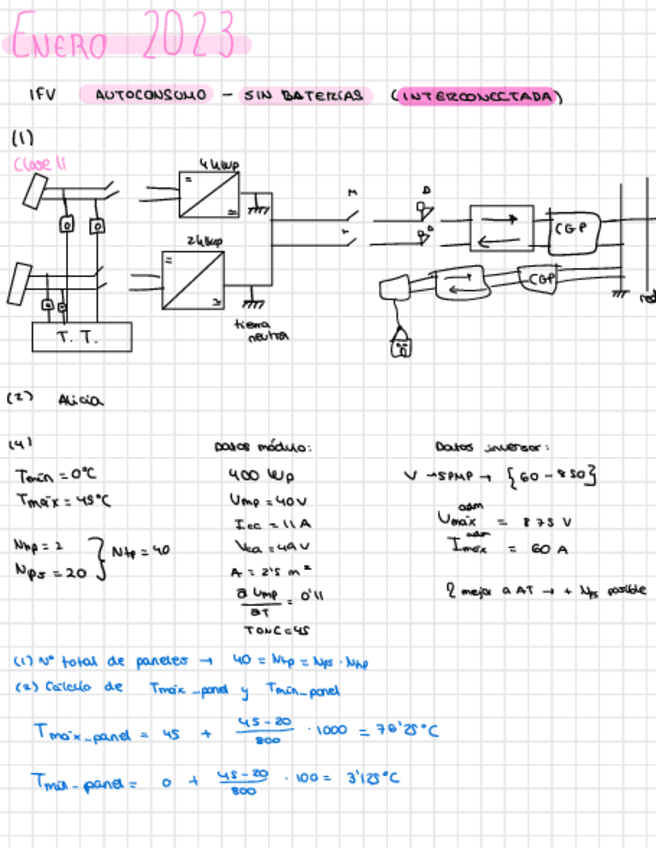 ENERO 2023
IFV AUTOCONSUMO - SIN BATERÍAS (INTERCONECTADA)
(1)
Clase II
4 kWp
2 kWp
M
D
CGP
CGP
T. T.
tierra
neutra
red
(2) Alicia
(4)
Tmín = 0°C
Tmáx = 45°C
Nmp = 2
Nps = 20
Ntp = 40
Datos módulo:
400 Wp
Ump = 40V
Icc = 11 A
Vca = 49V
A = 2'5 m²
∂ Ump
∂T
= 0'11
TONC = 45
Datos inversor:
V → SPMP → {60 - 850}
Umáx adm = 875 V
Imáx adm = 60 A
mejor a AT → + Nps posible
(1) Nº total de paneles → 40 = Ntp = Nps · Nmp
(2) Cálculo de Tmáx_panel y Tmín_panel
Tmáx_panel = 45 + 45-20/800 · 1000 = 76'25°C
Tmín_panel = 0 + 45-20/800 · 100 = 3'125°C